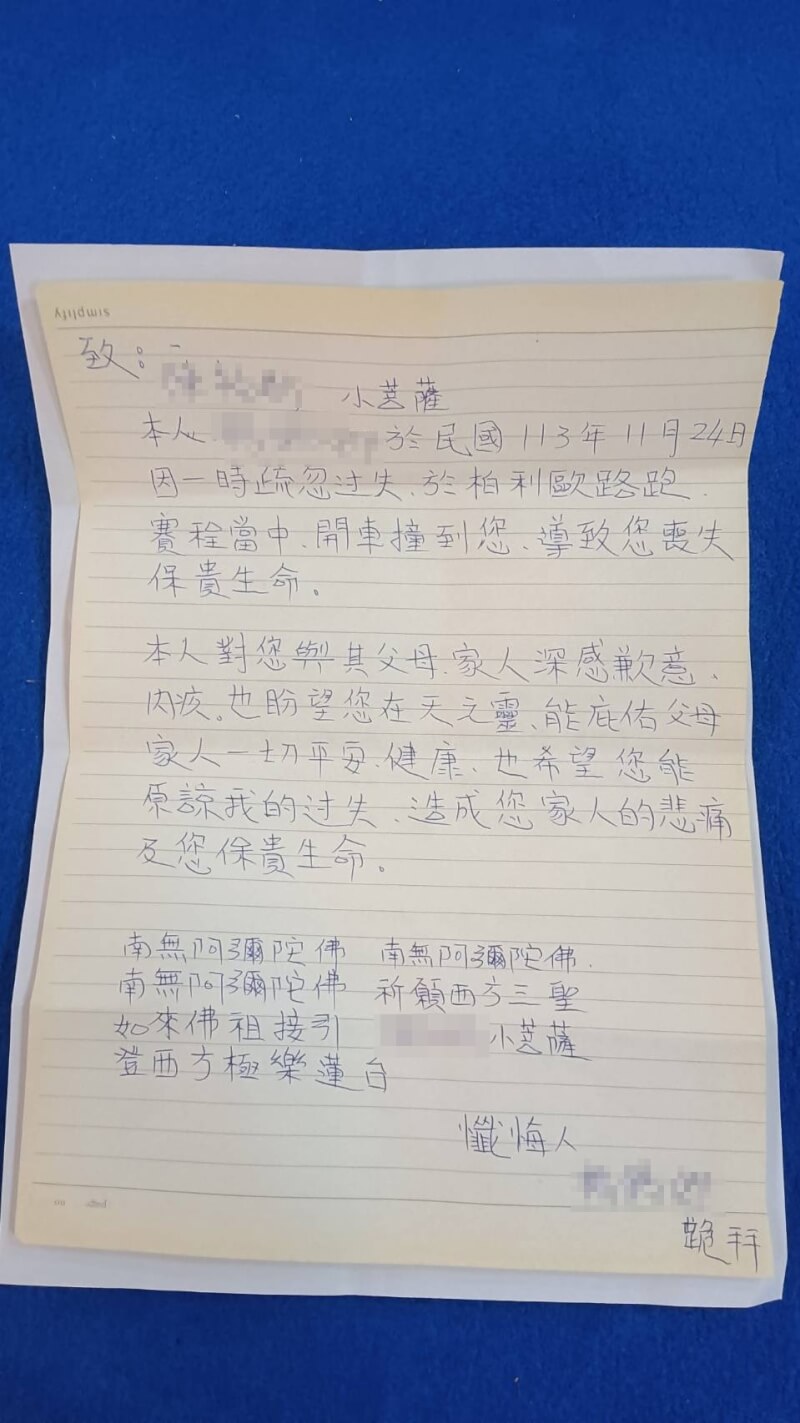 simplify
致：
小菩薩
本人 於民國113年11月24日
因一時疏忽过失、於柏利歐路跑、
賽程當中、開車撞到您、導致您喪失
保貴生命。
本人對您與其父母、家人深感歉意、
內疚。也盼望您在天之靈、能庇佑父母
家人一切平安、健康、也希望您能
原諒我的过失、造成您家人的悲痛
及您保貴生命。
南無阿彌陀佛 南無阿彌陀佛.
南無阿彌陀佛 祈願西方三聖
如來佛祖接引 小菩薩
登西方極樂蓮台
懺悔人
跪拜